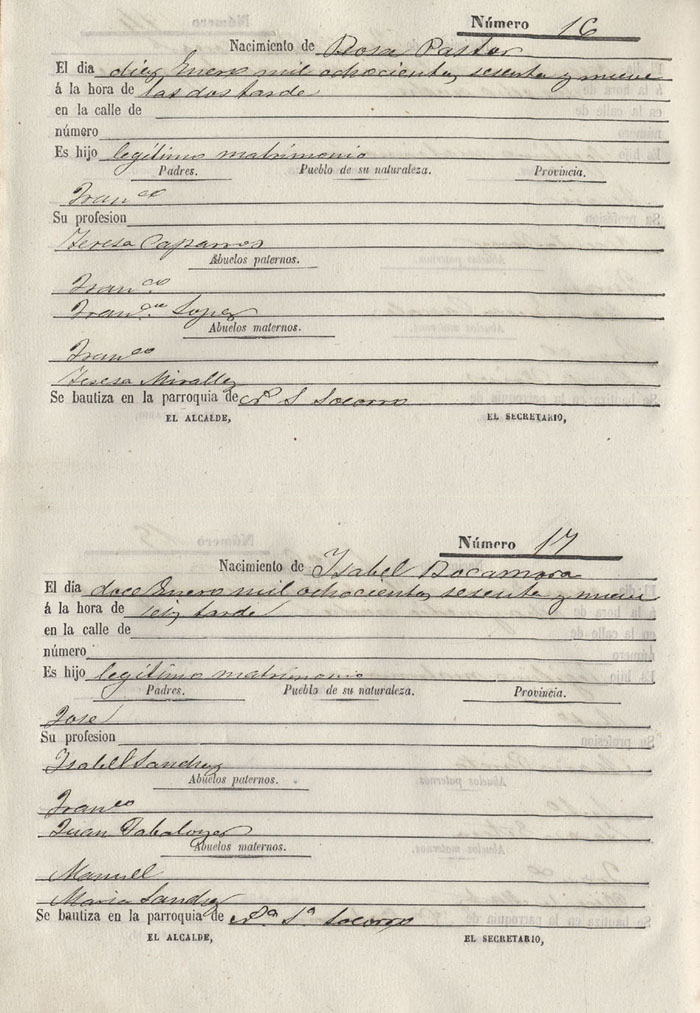 Número 16
Nacimiento de Rosa Pastor
El dia diez Enero mil ochocientos sesenta y nueve
á la hora de las dos tarde
en la calle de
número
Es hijo legítimo matrimonio
Padres. Pueblo de su naturaleza. Provincia.
Franco
Su profesion
Teresa Caparros
Abuelos paternos.
Franco
Franca Lopez
Abuelos maternos.
Franco
Teresa Miralles
Se bautiza en la parroquia de Nª S Socorro
EL ALCALDE, EL SECRETARIO,
Número 17
Nacimiento de Ysabel Rocamora
El dia doce Enero mil ochocientos sesenta y nueve
á la hora de seis tarde
en la calle de
número
Es hijo legítimo matrimonio
Padres. Pueblo de su naturaleza. Provincia.
José
Su profesion
Ysabel Sanchez
Abuelos paternos.
Franco
Juan
Abuelos maternos.
Manuel
Maria Sanchez
Se bautiza en la parroquia de Nª Sª Socorro
EL ALCALDE, EL SECRETARIO,